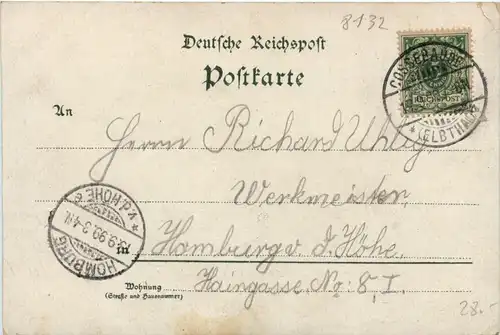 8132
Deutsche Reichspost
Postkarte
REICHSPOST
COSSEBAUDE
* (ELBTHAL) *
An
Herrn Richard Uhlig
Werkmeister
in
Homburg v. d. Höhe.
HOMBURG
v.d. HÖHE
3.9.99. 3-4N.
Wohnung
(Straße und Hausnummer)
Haingasse Nr: 8, I.
28.